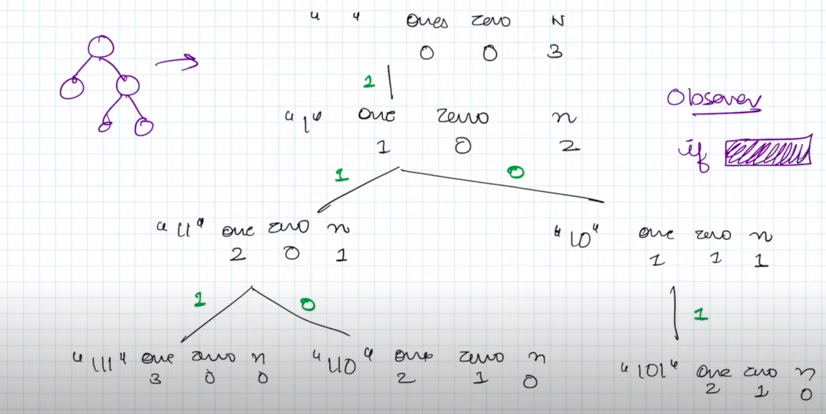 " " ones zero N
0 0 3
1
"1" one zero n
1 0 2
Observer
if
1 0
"11" one zero n
2 0 1
"10" one zero n
1 1 1
1 0
1
"111" one zero n
3 0 0
"110" one zero n
2 1 0
"101" one zero n
2 1 0